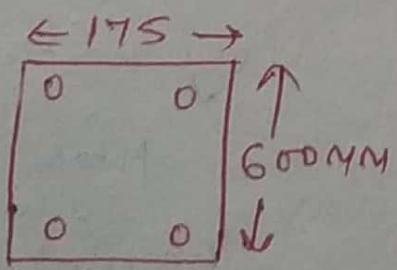 ← 175 →
600MM